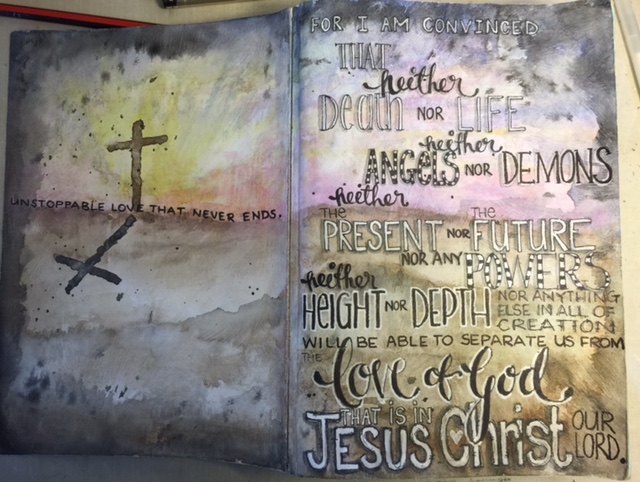 UNSTOPPABLE LOVE THAT NEVER ENDS.
FOR I AM CONVINCED
THAT
neither
Death NOR LIFE
neither
ANGELS NOR DEMONS
neither
THE PRESENT NOR THE FUTURE
NOR ANY POWERS
neither
HEIGHT NOR DEPTH NOR ANYTHING
ELSE IN ALL OF
CREATION
WILL BE ABLE TO SEPARATE US FROM
THE Love of God
THAT IS IN
JESUS Christ OUR
LORD.